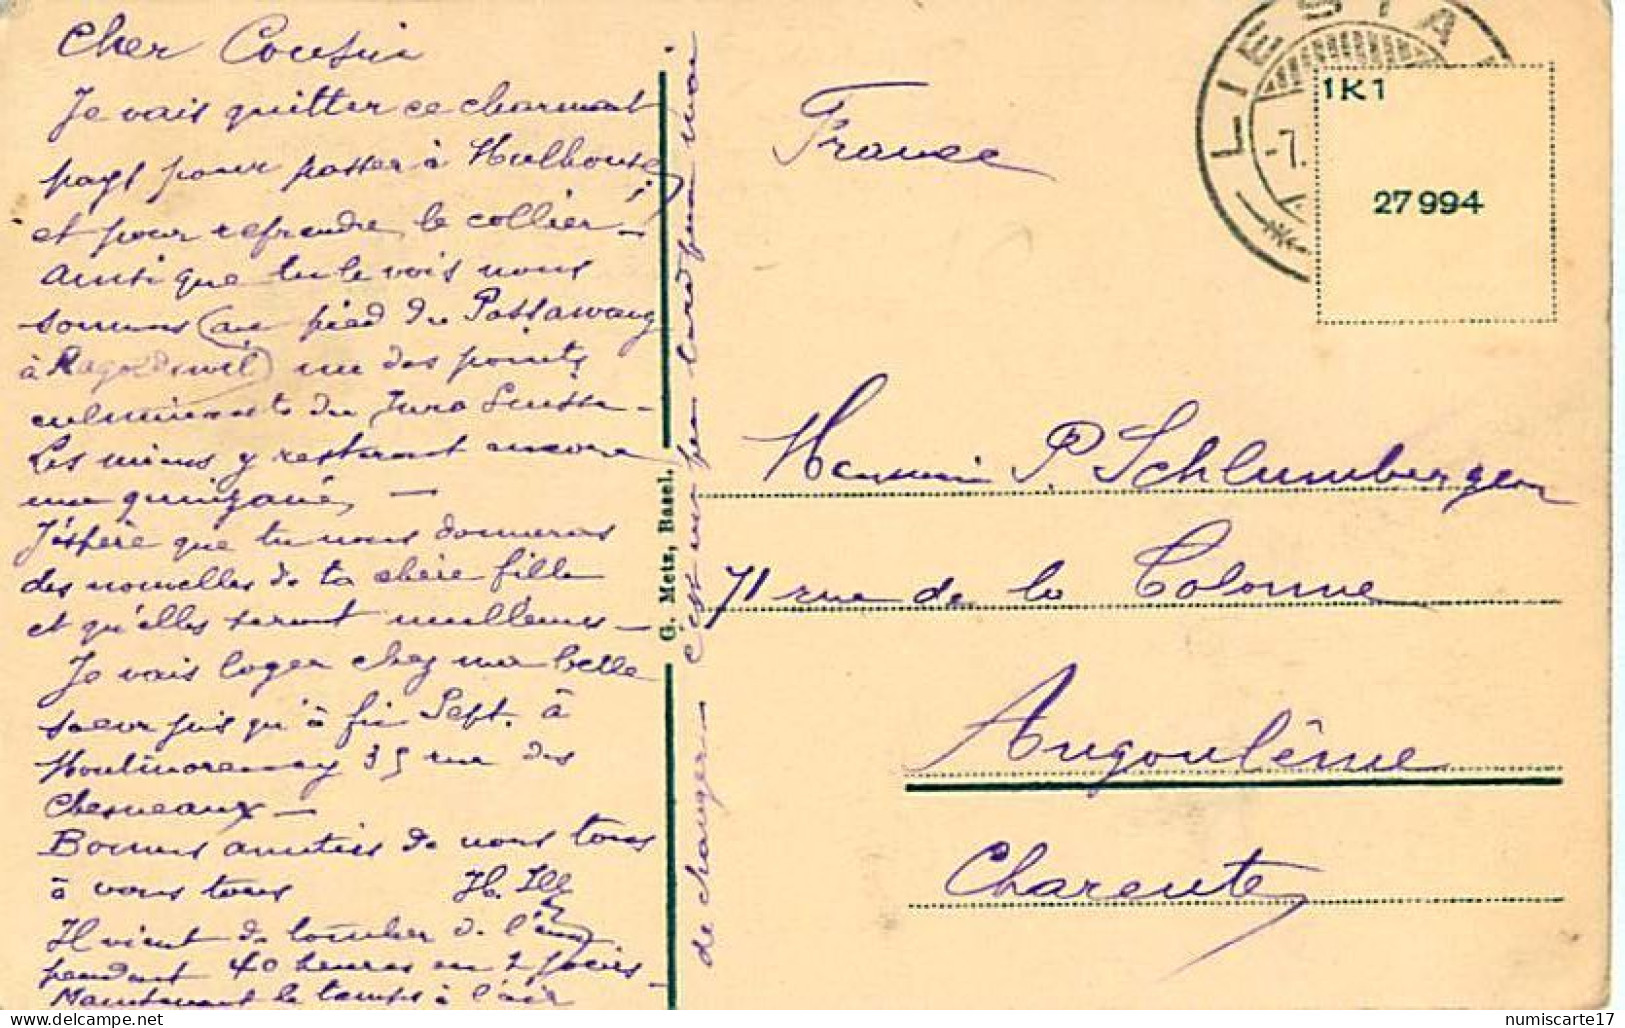 Cher Cousin
Je vais quitter ce charmant
pays pour passer à Mulhouse
et pour reprendre le collier –
Ainsi que tu le vois nous
sommes (au pied du Passawang
à Ragoldswil) un des points
culminants du Jura Suisse –
Les miens y resteront encore
une quinzaine, –
J'espère que tu nous donneras
des nouvelles de ta chère fille
et qu'elles seront meilleures –
Je vais loger chez ma belle
soeur jusqu'à fin Sept. à
35 rue des
Chesneaux –
Bonnes amitiés de nous tous
à vous tous H. Ill
Il vient de tomber de l'eau
pendant 40 heures en 2 fois –
Maintenant le temps à l'air
de changer – C'est un peu tard pour moi
G. Metz, Basel.
France
LIESTAL
-7.
1K1
27 994
Monsieur P. Schlumberger
71 rue de la Colonne
Angoulême
Charente
numiscarte17